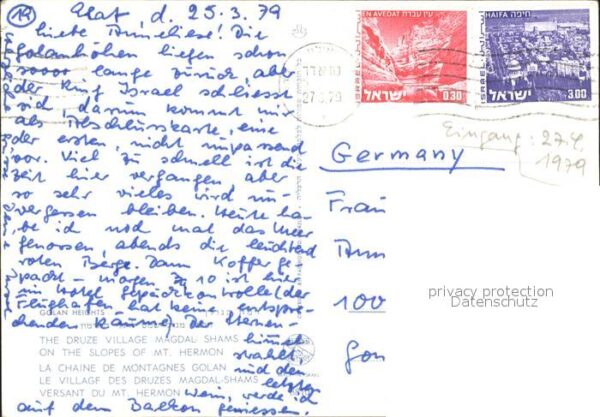 14
Elat, d. 25.3.79
Liebe Anneliese! Die
Golanhöhen liegen schon
soooo lange zurück, aber
der Ring Israel schliesst
sich, darum kommt mir
als Abschlusskarte, eine
der ersten, nicht unpassend
vor. Viel zu schnell ist die
Zeit hier vergangen aber
so sehr vieles wird un-
vergessen bleiben. Heute ha-
be ich noch mal das Meer
genossen, abends die leuchtend
roten Berge. Dann Koffer ge-
packt – morgen zu 10 ist hier
im Hotel Gepäckkontrolle (der
Flughafen hat keine entspre-
chenden Räume). Der Sternen-
himmel
strahlt,
und den
letzten
Wein, werde ich
auf dem Balkon geniessen.
GOLAN HEIGHTS
THE DRUZE VILLAGE MAGDAL SHAMS
ON THE SLOPES OF MT. HERMON
LA CHAINE DE MONTAGNES GOLAN
LE VILLAGE DES DRUZES MAGDAL-SHAMS
VERSANT DU MT. HERMON
EN AVEDAT עין עבדת
ISRAEL
ישראל 0.30
HAIFA חיפה
ISRAEL
ישראל 3.00
27.3.79
Eingang: 27.4.
1979
Germany
Frau
Ann
100
privacy protection
Datenschutz